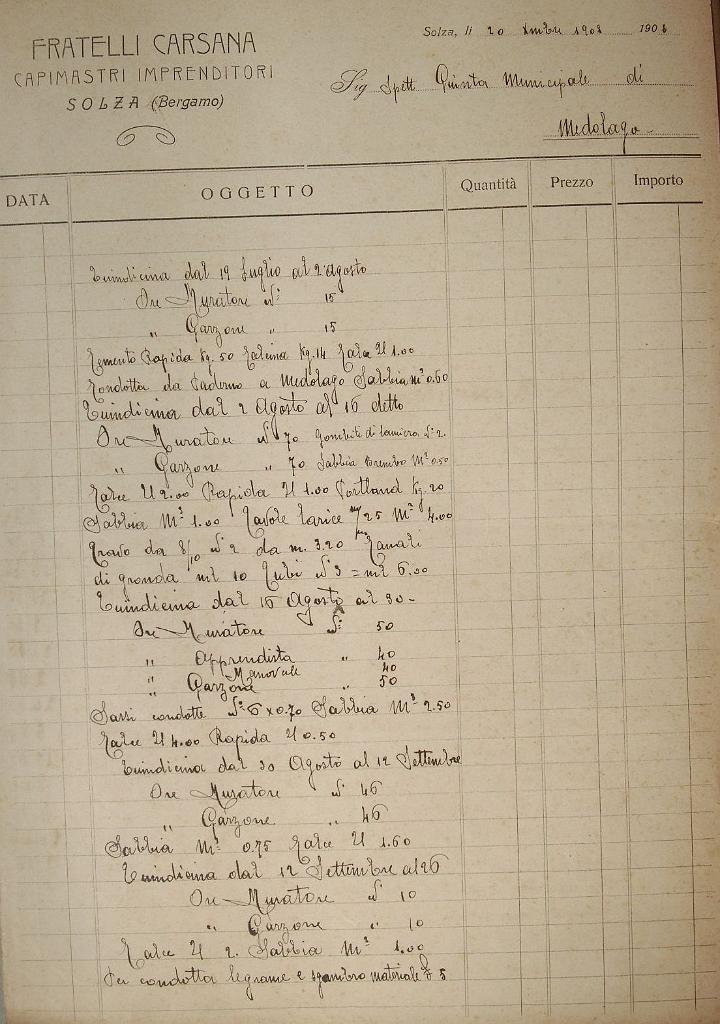 FRATELLI CARSANA
CAPIMASTRI IMPRENDITORI
SOLZA (Bergamo)
Solza, li 20 Xmbre 1908 1908
Sig Spett Giunta Municipale di
Medolago
DATA OGGETTO Quantità Prezzo Importo
Quindicina dal 19 Luglio al 2 Agosto
Ore Muratore N° 15
" Garzone " 15
Cemento Rapida Kg. 50 Kg. 14 Calce Ql 1.00
Condotta da Paderno a Medolago Sabbia m³ 0.60
Quindicina dal 2 Agosto al 16 detto
Ore Muratore N° 70 Gombiti di lamiera N° 2.
" Garzone " 70 Sabbia Brembo M³ 0.50
Calce Ql 2.00 Rapida Ql 1.00 Portland Kg. 20
Sabbia M³ 1.00 Tavole larice m/m 25 M² 4.00
Travo da 8/10 N° 2 da m. 3.20 Canali
di gronda ml 10 Tubi N° 3 = ml 6.00
Quindicina dal 16 Agosto al 30 -
Ore Muratore N° 50
" Apprendista " 40
" Manovale 40
" Garzone " 50
Sassi condotte N° 6 x 0.70 Sabbia M³ 2.50
Calce Ql 4.00 Rapida Ql 0.50
Quindicina dal 30 Agosto al 12 Settembre
Ore Muratore N° 46
" Garzone " 46
Sabbia M³ 0.75 Calce Ql 1.60
Quindicina dal 12 Settembre al 26
Ore Muratore N° 10
" Garzone " 10
Calce Ql 2. Sabbia M³ 1.00
Per condotta legname e sgombro materiale £ 5